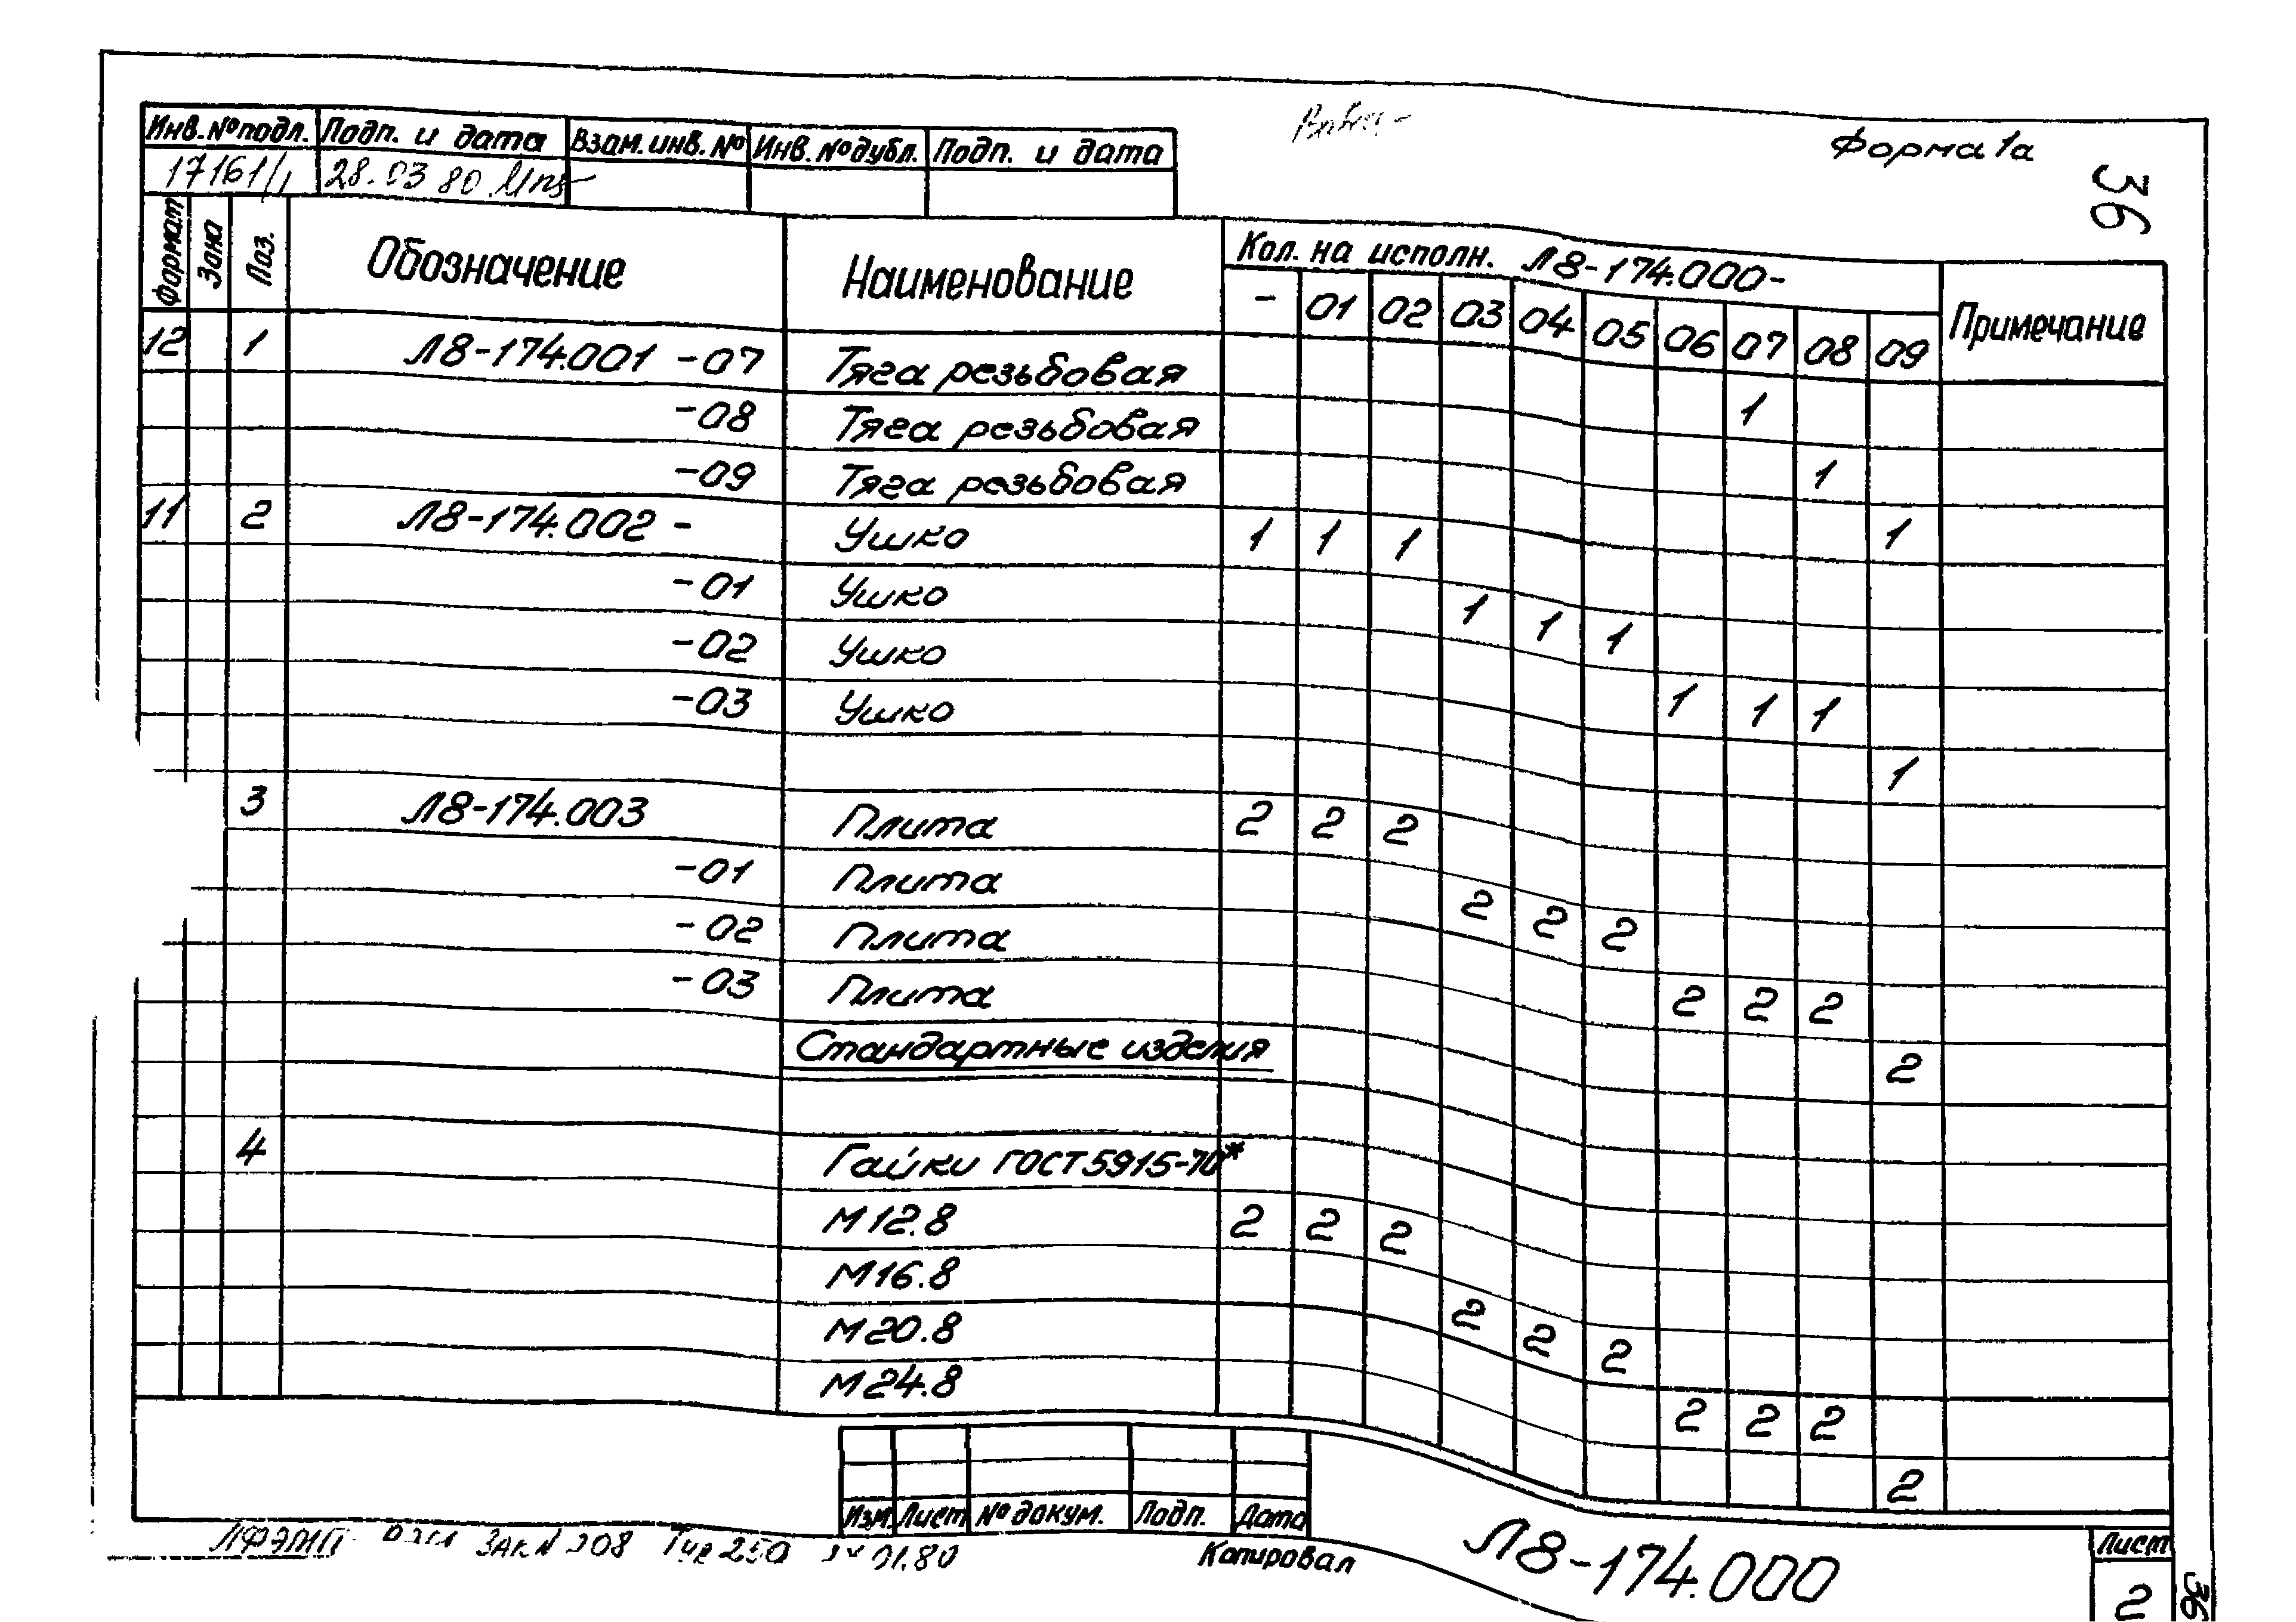 Форма 1а
36
Инв. № подл. Подп. и дата Взам. инв. № Инв. № дубл. Подп. и дата
17161/1 28.03 80
Формат Зона Поз. Обозначение Наименование Кол. на исполн. Л8-174.000- Примечание
- 01 02 03 04 05 06 07 08 09
12 1 Л8-174.001 -07 Тяга резьбовая 1
-08 Тяга резьбовая 1
-09 Тяга резьбовая 1
11 2 Л8-174.002 - Ушко 1 1 1
-01 Ушко 1 1 1
-02 Ушко 1 1 1
-03 Ушко 1
3 Л8-174.003 Плита 2 2 2
-01 Плита 2 2 2
-02 Плита 2 2 2
-03 Плита 2
Стандартные изделия
4 Гайки ГОСТ 5915-70*
М12.8 2 2 2
М16.8 2 2 2
М20.8 2 2 2
М24.8 2
Изм. Лист № докум. Подп. Дата
Л8-174.000
Лист
2
Зак N 208 Тир 250 01.80
Копировал
36